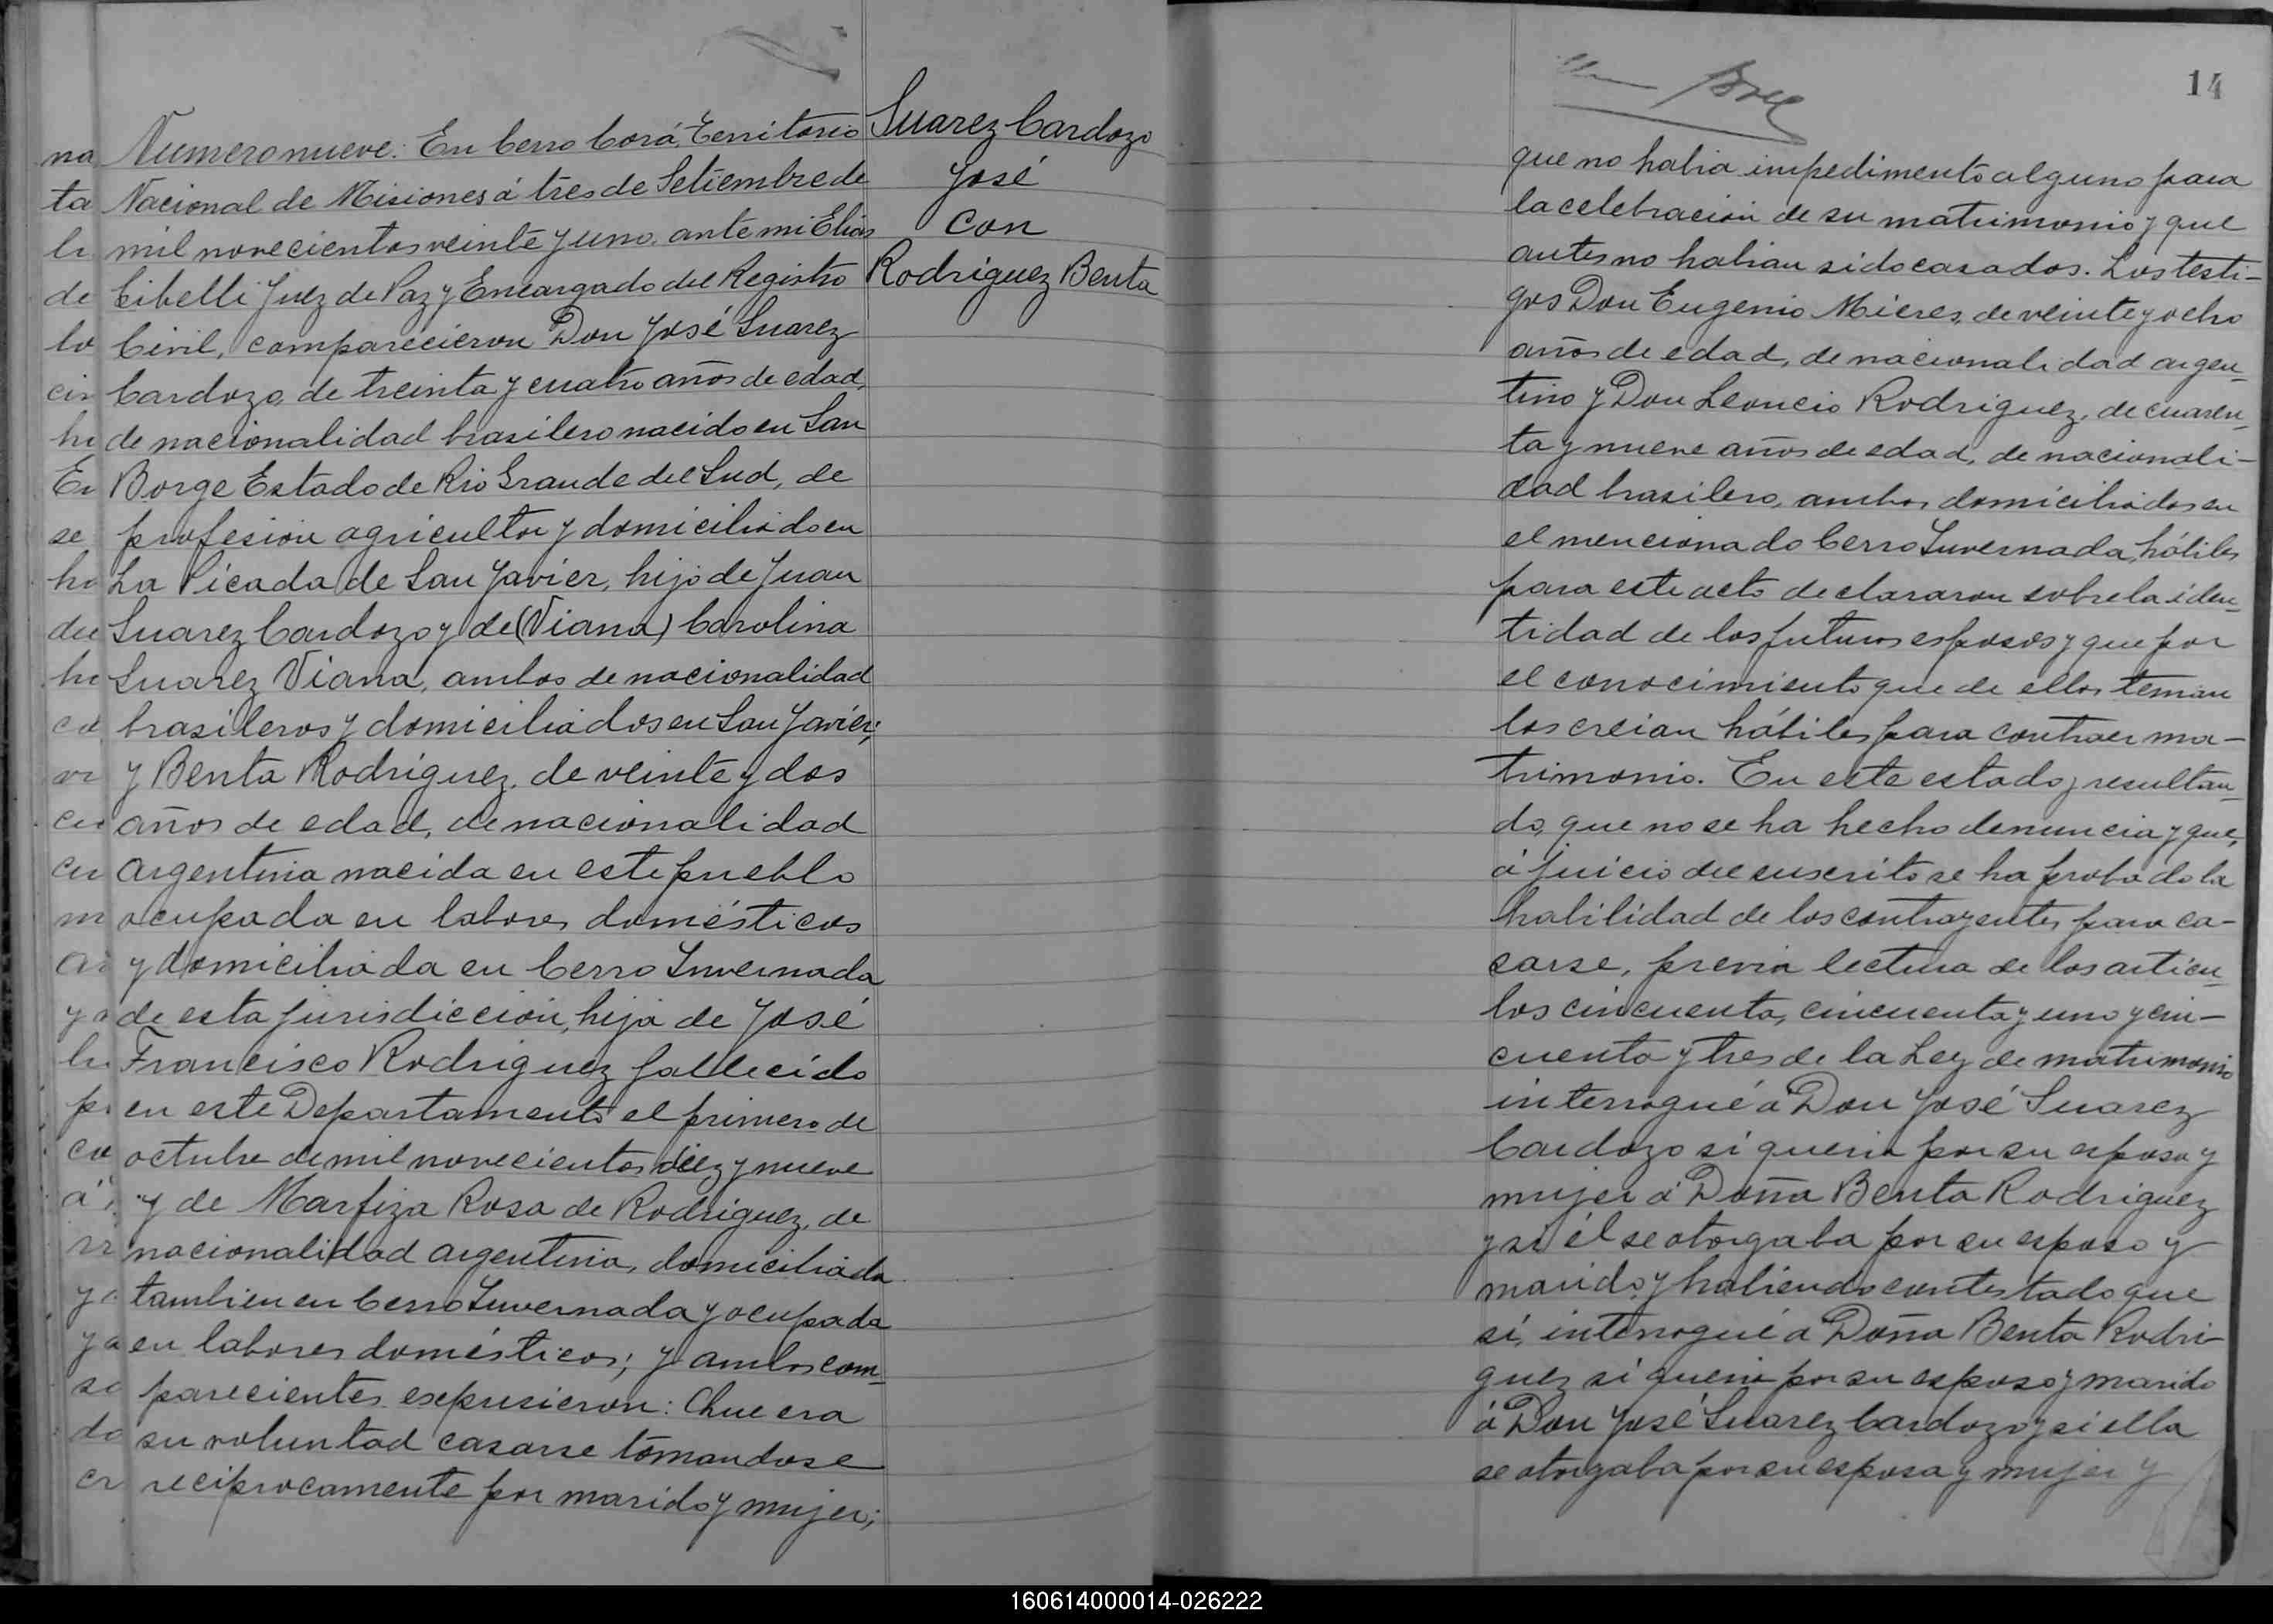 Suarez Cardozo
José
con
Rodriguez Benta
Numero nueve: En Cerro Corá, Territorio
Nacional de Misiones á tres de Setiembre de
mil novecientos veinte y uno, ante mi Elias
Cibelli Juez de Paz y Encargado del Registro
Civil, comparecieron Don José Suarez
Cardozo, de treinta y cuatro años de edad,
de nacionalidad brasilero nacido en San
Borge Estado de Rio Grande del Sud, de
profesión agricultor y domiciliado en
La Picada de San Javier, hijo de Juan
Suarez Cardozo y de (Viana) Carolina
Suarez Viana, ambos de nacionalidad
brasileros y domiciliados en San Javier;
y Benta Rodriguez, de veinte y dos
años de edad, de nacionalidad
argentina nacida en este pueblo
ocupada en labores domésticos
y domiciliada en Cerro Invernada
de esta jurisdicción, hija de José
Francisco Rodriguez fallecido
en este Departamento el primero de
octubre de mil novecientos diez y nueve
y de Marfiza Rosa de Rodriguez, de
nacionalidad argentina, domiciliada
tambien en Cerro Invernada y ocupada
en labores domésticos; y ambos com-
parecientes esepusieron: Que era
su voluntad casarse tomandose
reciprocamente por marido y mujer;
na
ta
de
lo
cin
hi
En
se
hi
del
hi
14
que no habia impedimento alguno para
la celebración de su matrimonio y que
antes no habian sido casados. Los testi-
gos Don Eugenio Mieres, de veinte y ocho
años de edad, de nacionalidad argen-
tino y Don Leoncio Rodriguez, de cuaren-
ta y nueve años de edad, de nacionali-
dad brasilero, ambos domiciliados en
el mencionado Cerro Invernada, hábiles
para este acto declararon sobre la iden-
tidad de los futuros esposos y que por
el conocimiento que de ellos tenian
los creian hábiles para contraer ma-
trimonio. En este estado, resultan-
do, que no se ha hecho denuncia y que,
á juicio del suscrito se ha probado la
habilidad de los contrayentes para ca-
sarse, previa lectura de los articu-
los cincuenta, cincuenta y uno y cin-
cuenta y tres de la Ley de matrimonio
interrogué á Don José Suarez
Cardozo si queria por su esposa y
mujer á Doña Benta Rodriguez
y si él se otorgaba por su esposo y
marido y habiendo contestado que
sí, interrogué á Doña Benta Rodri-
guez si queria por su esposo y marido
á Don José Suarez Cardozo y si ella
se otorgaba por su esposa y mujer y
160614000014-026222